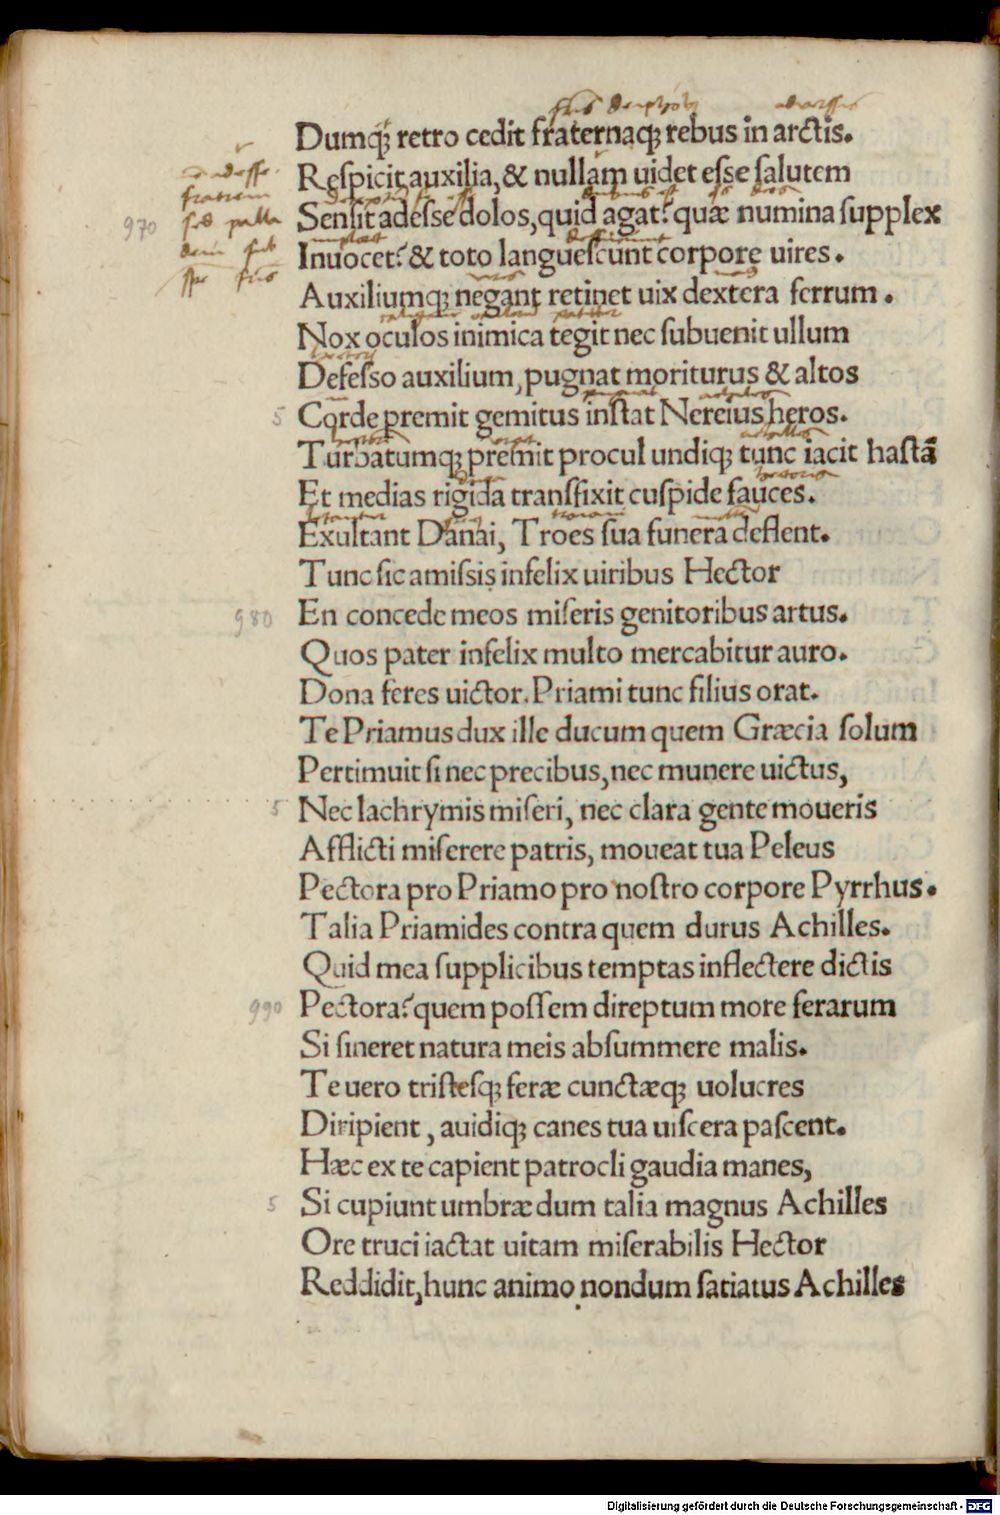 Dumq; retro cedit fraternaq; rebus in arctis.
Respicit auxilia, & nullam uidet esse salutem
970 Sensit adesse dolos, quid agat? quæ numina supplex
Inuocet? & toto languescunt corpore uires.
Auxiliumq; negant retinet uix dextera ferrum.
Nox oculos inimica tegit nec subuenit ullum
Defesso auxilium, pugnat moriturus & altos
5 Corde premit gemitus instat Nereius heros.
Turbatumq; premit procul undiq; tunc iacit hastā
Et medias rigida transfixit cuspide fauces.
Exultant Danai, Troes sua funera deflent.
Tunc sic amissis infelix uiribus Hector
980 En concede meos miseris genitoribus artus.
Quos pater infelix multo mercabitur auro.
Dona feres uictor. Priami tunc filius orat.
Te Priamus dux ille ducum quem Græcia solum
Pertimuit si nec precibus, nec munere uictus,
5 Nec lachrymis miseri, nec clara gente moueris
Afflicti miserere patris, moueat tua Peleus
Pectora pro Priamo pro nostro corpore Pyrrhus.
Talia Priamides contra quem durus Achilles.
Quid mea supplicibus temptas inflectere dictis
990 Pectora? quem possem direptum more ferarum
Si sineret natura meis absummere malis.
Te uero tristesq; feræ cunctæq; uolucres
Diripient, auidiq; canes tua uiscera pascent.
Hæc ex te capient patrocli gaudia manes,
5 Si cupiunt umbræ dum talia magnus Achilles
Ore truci iactat uitam miserabilis Hector
Reddidit, hunc animo nondum satiatus Achilles
Digitalisierung gefördert durch die Deutsche Forschungsgemeinschaft - DFG